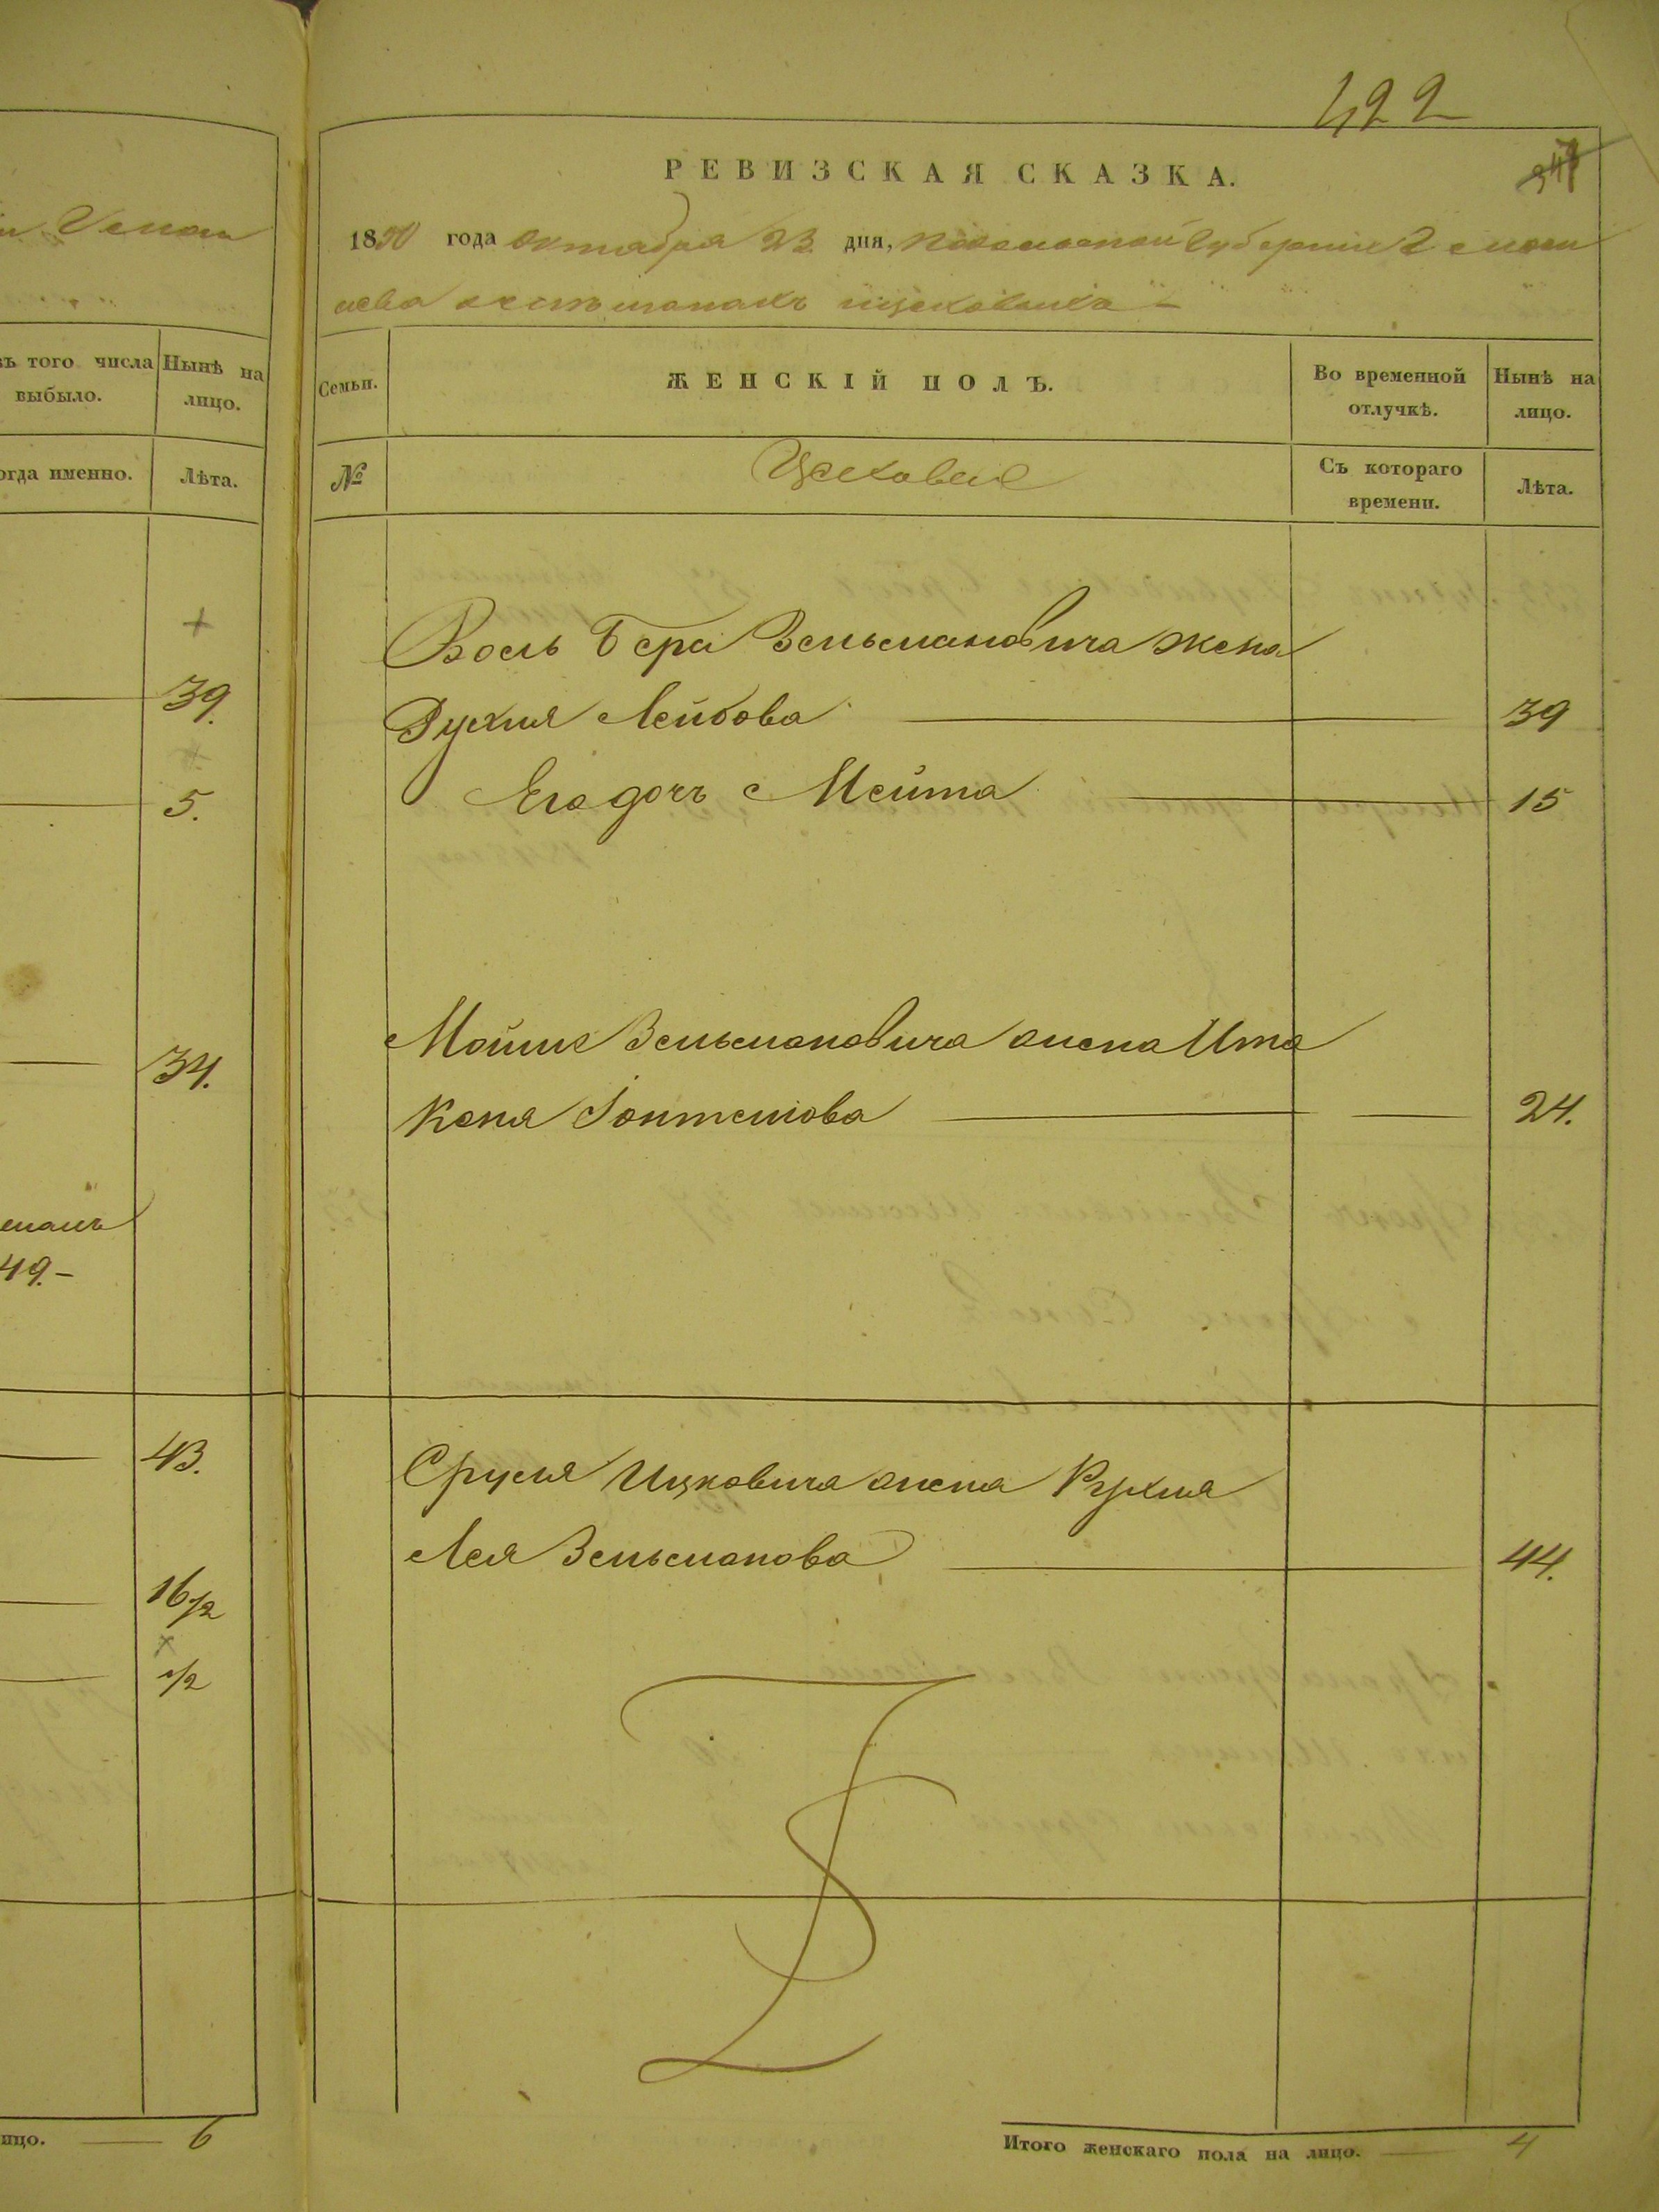 422
РЕВИЗСКАЯ СКАЗКА.
347
1850 года октября 23 дня, Подольской Губернии Г
цеховыхъ
въ того числа выбыло.
Нынѣ на лицо.
Семьи.
ЖЕНСКІЙ ПОЛЪ.
Во временной отлучкѣ.
Нынѣ на лицо.
огда именно.
Лѣта.
№
Цеховые
Съ котораго времени.
Лѣта.
+
39.
5.
34.
49.-
43.
16 1/2
x
1/2
Вось Бера Зельмановича жена
Рухля Лейбова 39
Его дочь Мейта 15
Мошие Зельмановича жена Ита
Кеня 24.
Сруля Ицковича жена Рухля
Лея Зельманова 44.
ицо. 6
Итого женскаго пола на лицо. 4